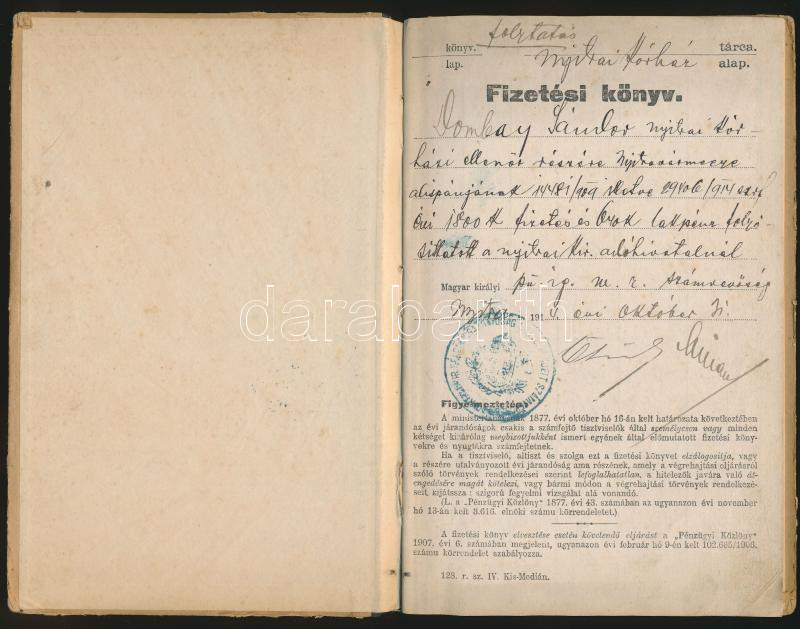 folytatás
könyv. tárca.
lap. Nyitrai Kórház alap.
Fizetési könyv.
Dombay Sándor nyitrai kór-
házi ellenőr részére Nyitravármegye
alispánjának 14481/909 illetve 29406/914
évi 1800 K fizetés és lakpénz folyó-
síttatott a nyitrai kir. adóhivatalnál
Magyar királyi pü. ig. m. r. számvevőség
Nyitra 1914 évi október 31.
darabanth.com
Figyelmeztetés.
A ministertanácsnak 1877. évi október hó 16-án kelt határozata következtében
az évi járandóságok csakis a számfejtő tisztviselők által személyesen vagy minden
kétséget kizárólag megbizottjukként ismert egyének által előmutatott fizetési köny-
vekre és nyugtákra számfejtetnek.
Ha a tisztviselő, altiszt és szolga ezt a fizetési könyvet elzálogosítja, vagy
a részére utalványozott évi járandóság ama részének, amely a végrehajtási eljárásról
szóló törvények rendelkezései szerint lefoglalhatatlan, a hitelezők javára való át-
engedésére magát kötelezi, vagy bármi módon a végrehajtási törvények rendelkezé-
seit kijátssza: szigorú fegyelmi vizsgálat alá vonandó.
(L. a "Pénzügyi Közlöny" 1877. évi 43. számában az ugyanazon évi november
hó 13-án kelt 3.616. elnöki számu körrendeletet.)
A fizetési könyv elvesztése esetén követendő eljárást a "Pénzügyi Közlöny"
1907. évi 6. számában megjelent, ugyanazon évi február hó 9-én kelt 102.665/1906.
számu körrendelet szabályozza.
128. r. sz. IV. Kis-Medián.